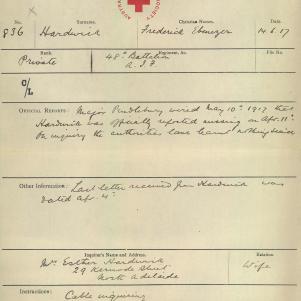 No. Surname. Christian Names.
836 Hardwick Frederick Ebenezer 14.6.17
Rank. Regiment, &c.
Private 48th Battalion
A.I.F
O/L
OFFICIAL REPORTS: Major Pendlebury wired May 10th 1917 that
Hardwick was officially reported missing on Apr. 11th
On inquiry the authorities have learnt nothing
Other Information: Last letter received from Hardwick was
dated Apr. 4th.
Inquirer's Name and Address. Relation
Mrs Esther Hardwick Wife
29 Kermode Street
North Adelaide
Instructions: Cable inquiring